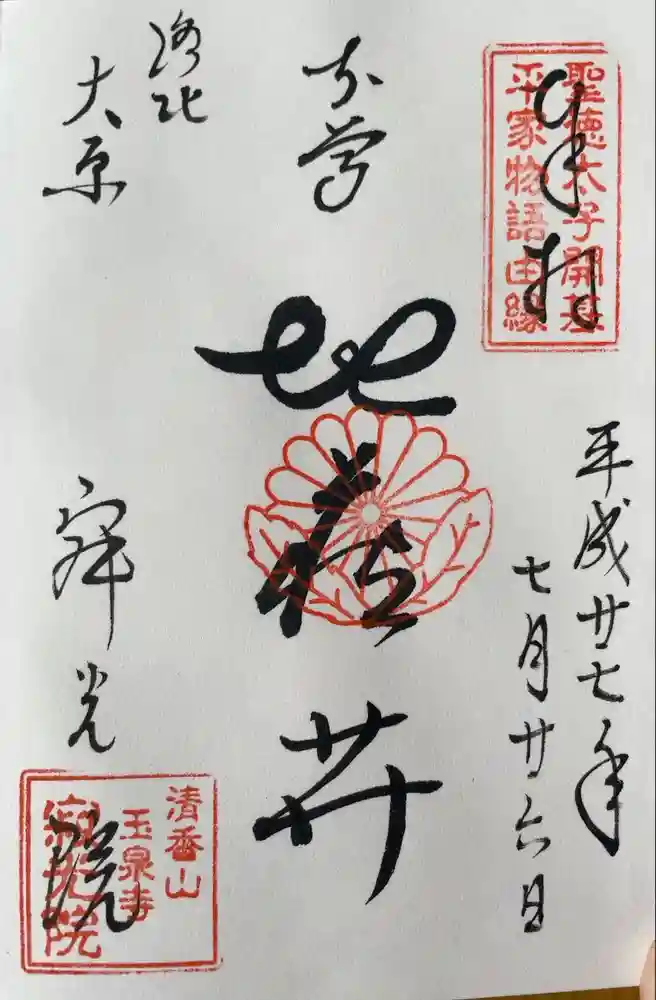 奉拝
聖徳太子開基
平家物語由縁
平成廿七年
七月廿六日
地蔵卄
洛北
大原
寂光
院
清香山
玉泉寺
寂光院